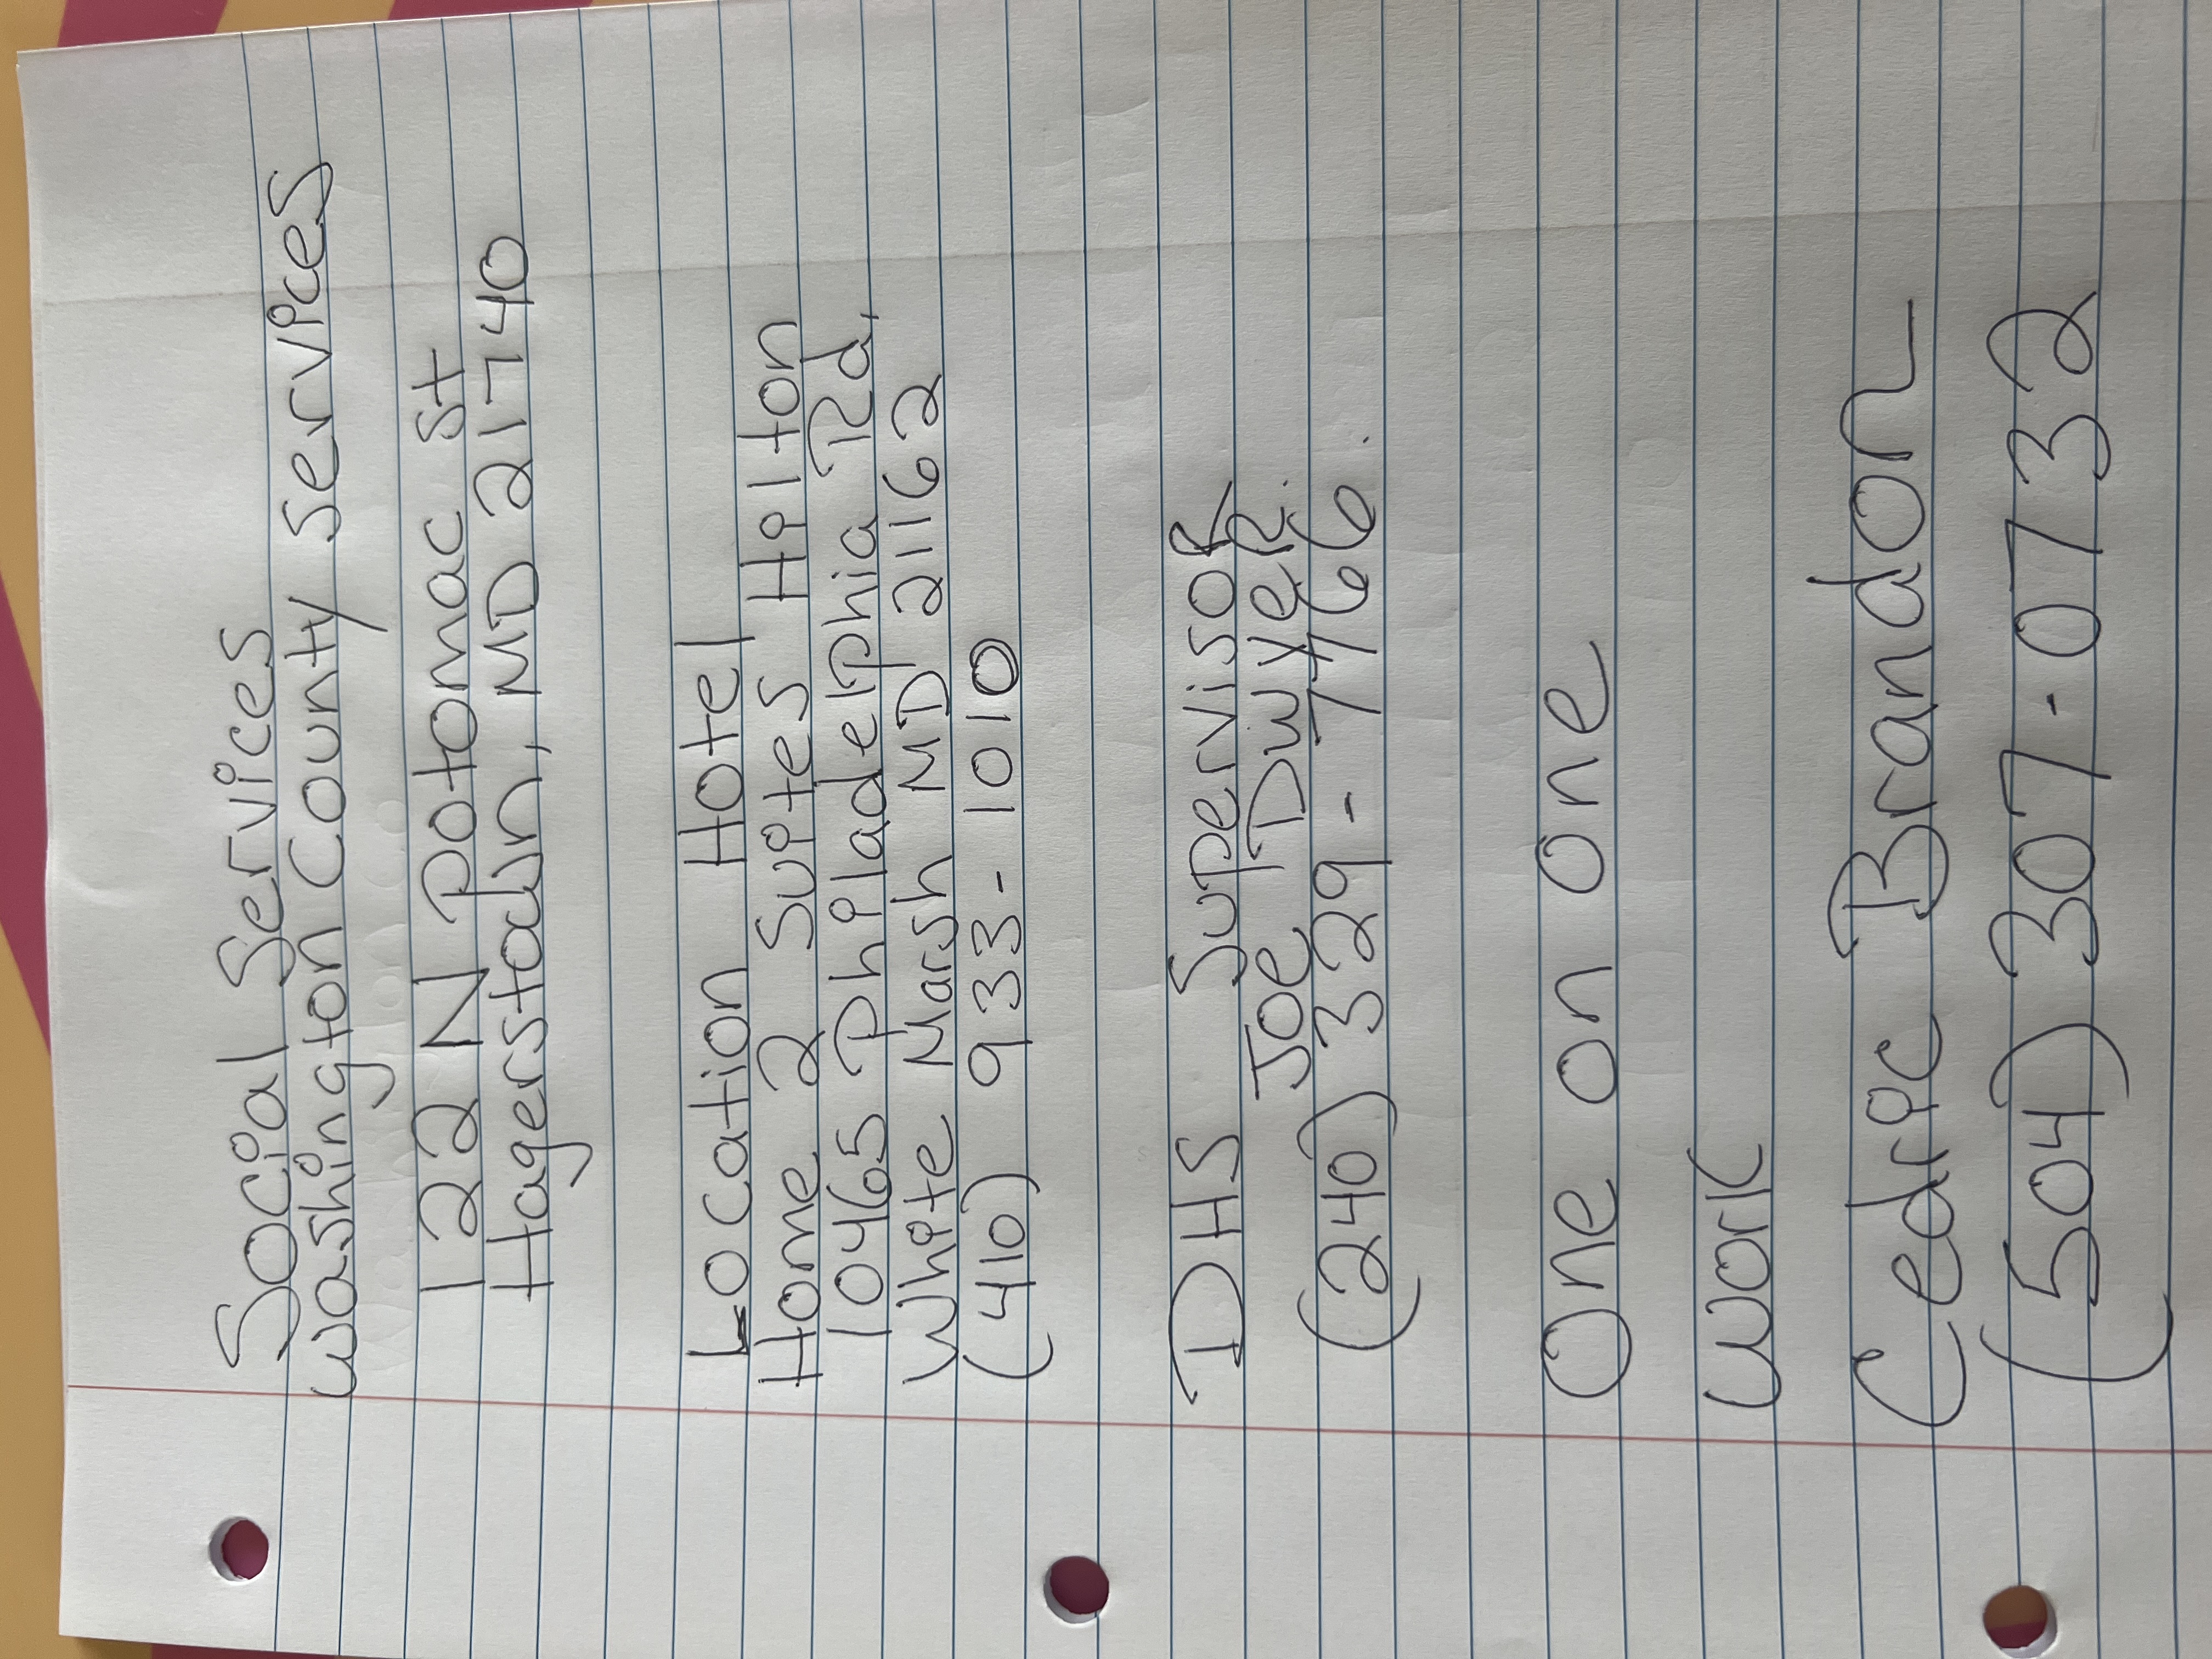 Social Services
Washington County Services
122 N Potomac St
Hagerstown, MD 21740
Location Hotel
Home 2 Suites Hilton
10465 Philadelphia Rd,
White Marsh MD 21162
(410) 933-1010
DHS Supervisor
Joe Dwyer.
(240) 329-7466.
One on One
Work
Cedric Brandon
(504) 307-0732